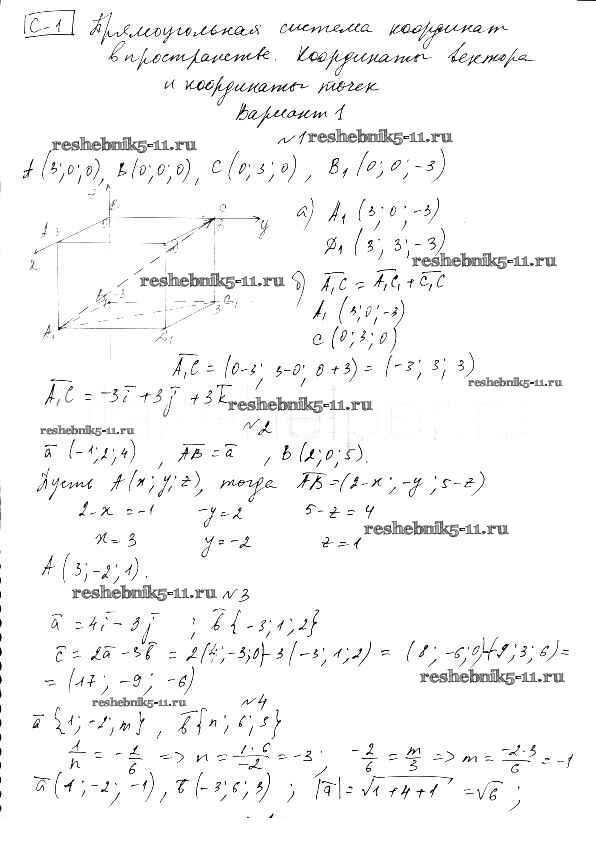 С-1 Прямоугольная система координат
в пространстве. Координаты вектора
и координаты точек
Вариант 1
reshebnik5-11.ru №1 reshebnik5-11.ru
A (3;0;0), B (0;0;0), C (0;3;0), B₁ (0;0;-3)
а) A₁ (3;0;-3)
D₁ (3; 3;-3)
reshebnik5-11.ru
x y A 3 B C 3 D
reshebnik5-11.ru
A₁ B₁ -3 C₁ D₁
б) A̅₁C̅ = A̅₁C̅₁ + C̅₁C̅
A₁ (3;0;-3)
C (0;3;0)
A̅₁C̅ = (0-3; 3-0; 0+3) = (-3; 3; 3)
reshebnik5-11.ru
A̅₁C̅ = -3i̅ + 3j̅ + 3k̅
reshebnik5-11.ru
№2
reshebnik5-11.ru
a̅ (-1;2;4), A̅B̅ = a̅, B (2;0;5).
Пусть A (x; y; z), тогда A̅B̅ = (2-x; -y; 5-z)
2-x = -1 -y = 2 5-z = 4
reshebnik5-11.ru
x = 3 y = -2 z = 1
A (3;-2;1).
reshebnik5-11.ru №3
a̅ = 4i̅ - 3j̅ ; b̅ {-3; 1; 2}
c̅ = 2a̅ - 3b̅ = 2(4;-3;0) - 3(-3; 1; 2) = (8; -6;0)+(9; 3; 6) =
= (17; -9; -6)
reshebnik5-11.ru
reshebnik5-11.ru №4
a̅ {1; -2; m}, b̅ {n; 6; 3}
1/n = -2/6 => n = 1·6/-2 = -3; -2/6 = m/3 => m = -2·3/6 = -1
a̅ (1; -2; -1), b̅ (-3; 6; 3) ; |a̅| = √1+4+1 = √6 ;